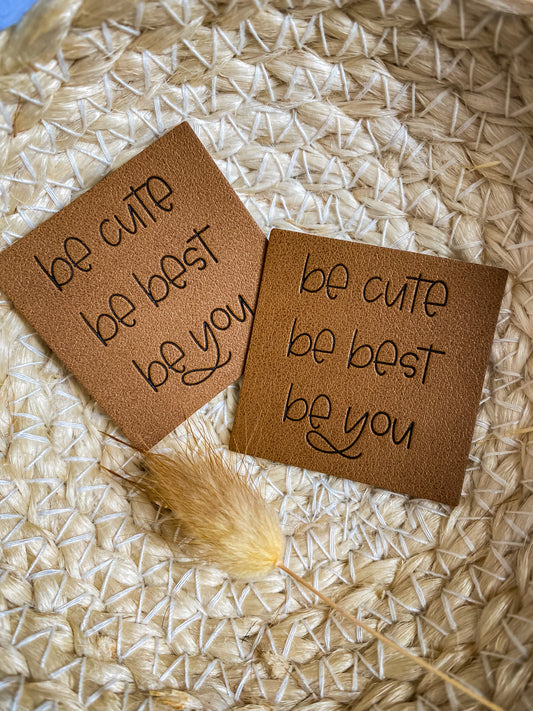 be cute
be best
be you
be cute
be best
be you